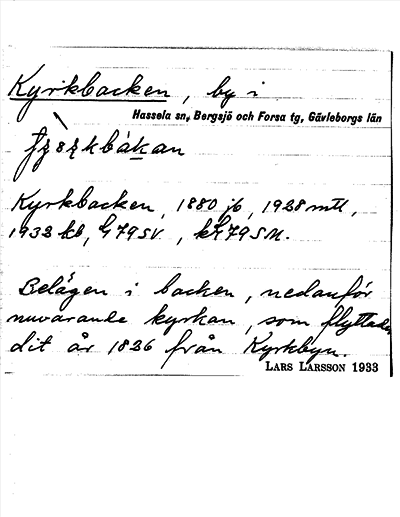 Kyrkbacken, by i
Hassela sn, Bergsjö och Forsa tg, Gävleborgs län
Kyrkbacken, 1880 jb, 1928 mtl,
1932 kb, G79SV, kf 79 SM.
Belägen i backen, nedanför
nuvarande kyrkan, som flyttades
dit år 1826 från Kyrkbyn.
LARS LARSSON 1933